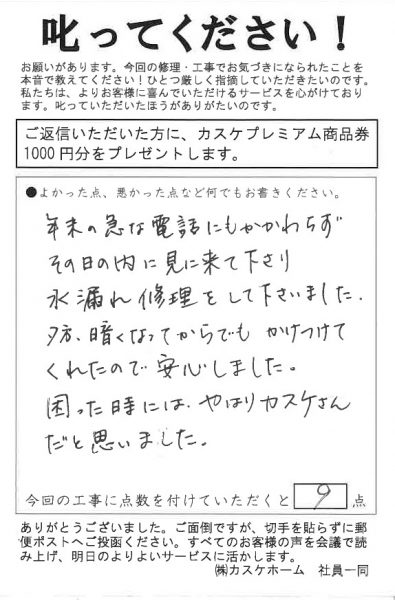 叱ってください！
お願いがあります。今回の修理・工事でお気づきになられたことを
本音で教えてください！ひとつ厳しく指摘していただきたいのです。
私たちは、よりお客様に喜んでいただけるサービスを心がけており
ます。叱っていただいたほうがありがたいのです。
ご返信いただいた方に、カスケプレミアム商品券
1000円分をプレゼントします。
●よかった点、悪かった点など何でもお書きください。
年末の急な電話にもかかわらず
その日の内に見に来て下さり
水漏れ修理をして下さいました.
夕方、暗くなってからでも かけつけて
くれたので 安心しました。
困った時には、やはりカスケさん
だと思いました。
今回の工事に点数を付けていただくと 9 点
ありがとうございました。ご面倒ですが、切手を貼らずに郵
便ポストへご投函ください。すべてのお客様の声を会議で読
み上げ、明日のよりよいサービスに活かします。
㈱カスケホーム 社員一同